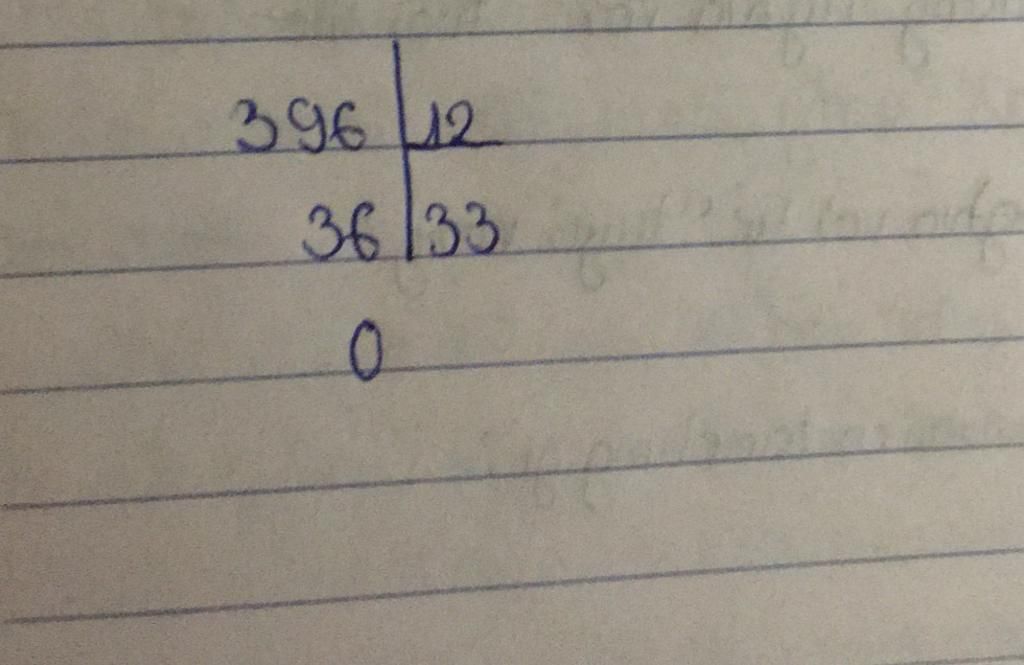 396 12
36 33
0